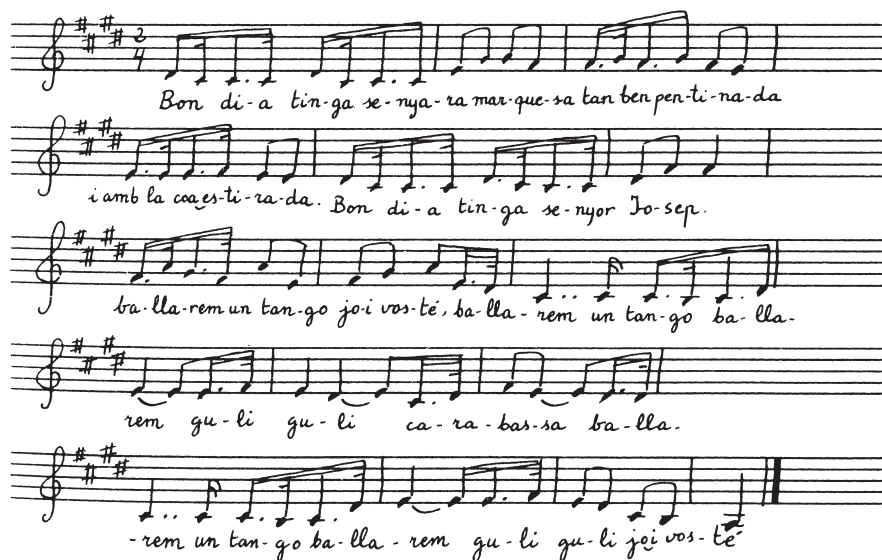 2
4
Bon di-a tin-ga se-nya-ra mar-que-sa tan ben pen-ti-na-da
i amb la coa es-ti-ra-da. Bon di-a tin-ga se-nyor Jo-sep.
ba-lla-rem un tan-go jo-i vos-té, ba-lla-rem un tan-go ba-lla-
rem gu-li gu-li ca-ra-bas-sa ba-lla-
-rem un tan-go ba-lla-rem gu-li gu-li joi vos-té